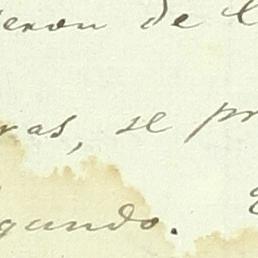 eron de l
ras, se pr
gundo.